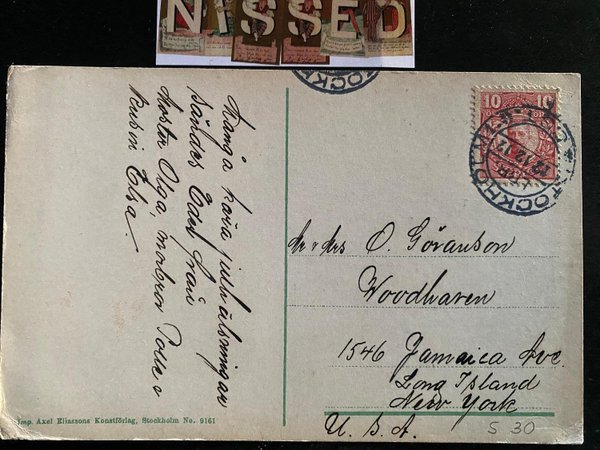 NISSED
STOCKH
10 10
ÖRE
STOCKHOLM
Många kära julhälsningar
sändes Eder från
Moster Olga, morbror Polle o
kusin Elsa.
Mr o Mrs O. Göranson
Woodhaven
1546 Jamaica Ave.
Long Island
New York
U. S. A.
S 30
Imp. Axel Eliassons Konstförlag, Stockholm No. 9161